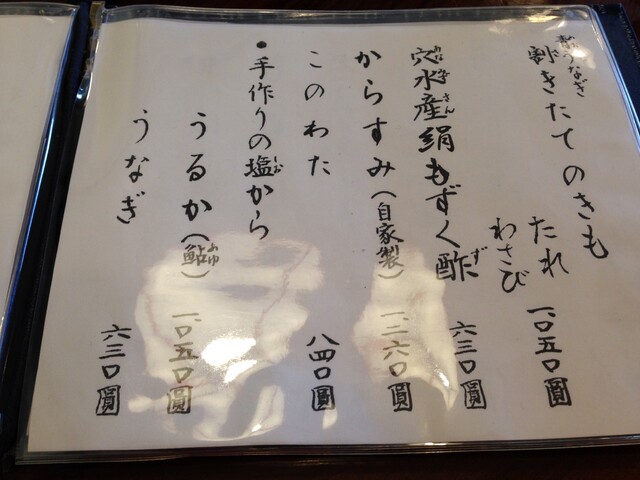 割きたてのきも
たれ
わさび
一、〇五〇圓
穴水産絹もずく酢
六三〇圓
からすみ(自家製)
一、三六〇圓
このわた
八四〇圓
●手作りの塩から
うるか(鮎)
一、〇五〇圓
うなぎ
六三〇圓